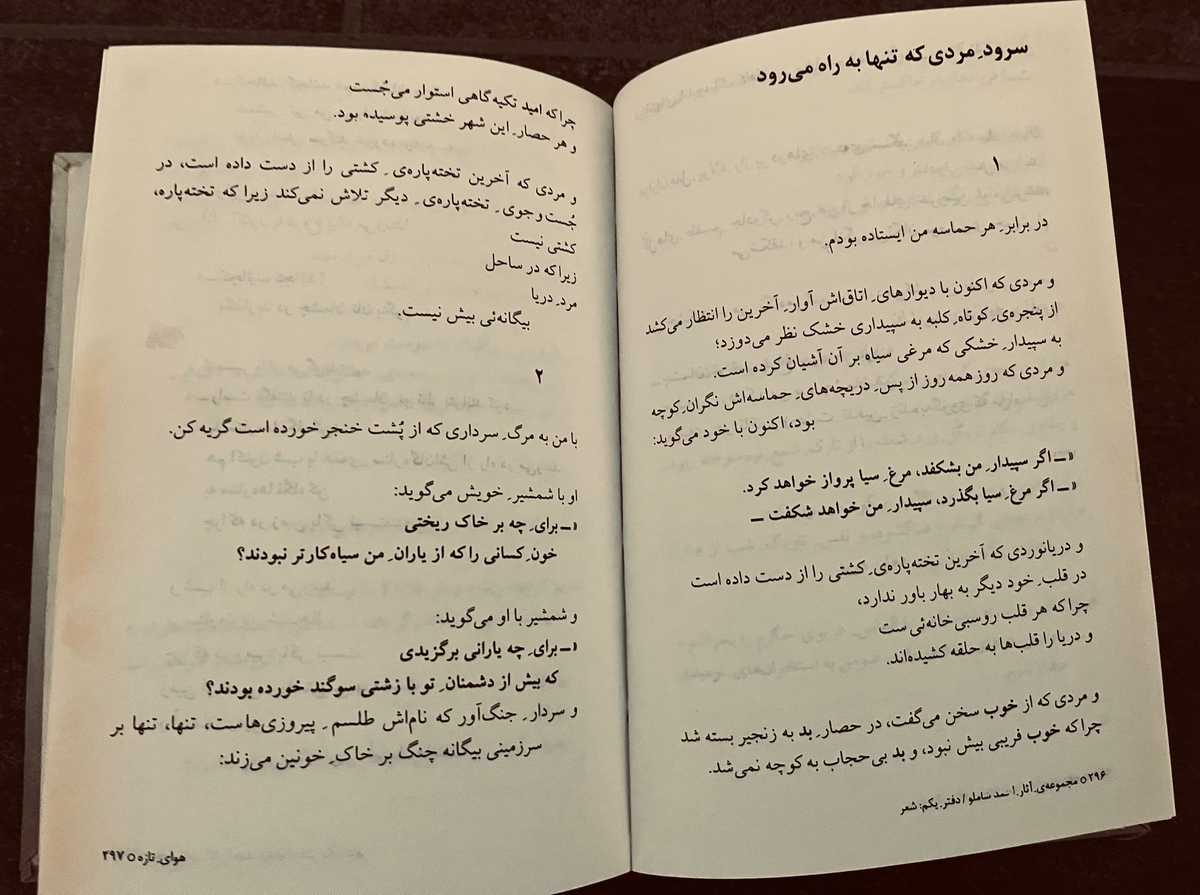 سرودِ مردی که تنها به راه می‌رود
۱
در برابرِ هر حماسه من ایستاده بودم.
و مردی که اکنون با دیوارهایِ اتاق‌اش آوارِ آخرین را انتظار می‌کشد
از پنجره‌یِ کوتاهِ کلبه به سپیداری خشک نظر می‌دوزد؛
به سپیدارِ خشکی که مرغی سیاه بر آن آشیان کرده است.
و مردی که روز همه روز از پسِ دریچه‌هایِ حماسه‌اش نگرانِ کوچه
بود، اکنون با خود می‌گوید:
«ــ اگر سپیدارِ من بشکفد، مرغِ سیا پرواز خواهد کرد.
«ــ اگر مرغِ سیا بگذرد، سپیدارِ من خواهد شکفت ــ
و دریانوردی که آخرین تخته‌پاره‌یِ کشتی را از دست داده است
در قلبِ خود دیگر به بهار باور ندارد،
چراکه هر قلب روسبی‌خانه‌ئی ست
و دریا را قلب‌ها به حلقه کشیده‌اند.
و مردی که از خوب سخن می‌گفت، در حصارِ بد به زنجیر بسته شد
چراکه خوب فریبی بیش نبود، و بد بی‌حجاب به کوچه نمی‌شد.
۲۹۶ ○ مجموعه‌یِ آثارِ احمد شاملو / دفترِ یکم: شعر
چراکه امید تکیه‌گاهی استوار می‌جُست
و هر حصارِ این شهر خشتی پوسیده بود.
و مردی که آخرین تخته‌پاره‌یِ کشتی را از دست داده است، در
جُست و جوی تخته‌پاره‌یِ دیگر تلاش نمی‌کند زیرا که تخته‌پاره،
کشتی نیست
زیراکه در ساحل
مردِ دریا
بیگانه‌ئی بیش نیست.
۲
با من به مرگِ سرداری که از پُشت خنجر خورده است گریه کن.
او با شمشیرِ خویش می‌گوید:
«ــ برایِ چه بر خاک ریختی
خونِ کسانی را که از یارانِ من سیاه‌کارتر نبودند؟
و شمشیر با او می‌گوید:
«ــ برایِ چه یارانی برگزیدی
که بیش از دشمنانِ تو با زشتی سوگند خورده بودند؟
و سردارِ جنگ‌آور که نام‌اش طلسمِ پیروزی‌هاست، تنها، تنها بر
سرزمینی بیگانه چنگ بر خاکِ خونین می‌زند:
هوایِ تازه ○ ۲۹۷